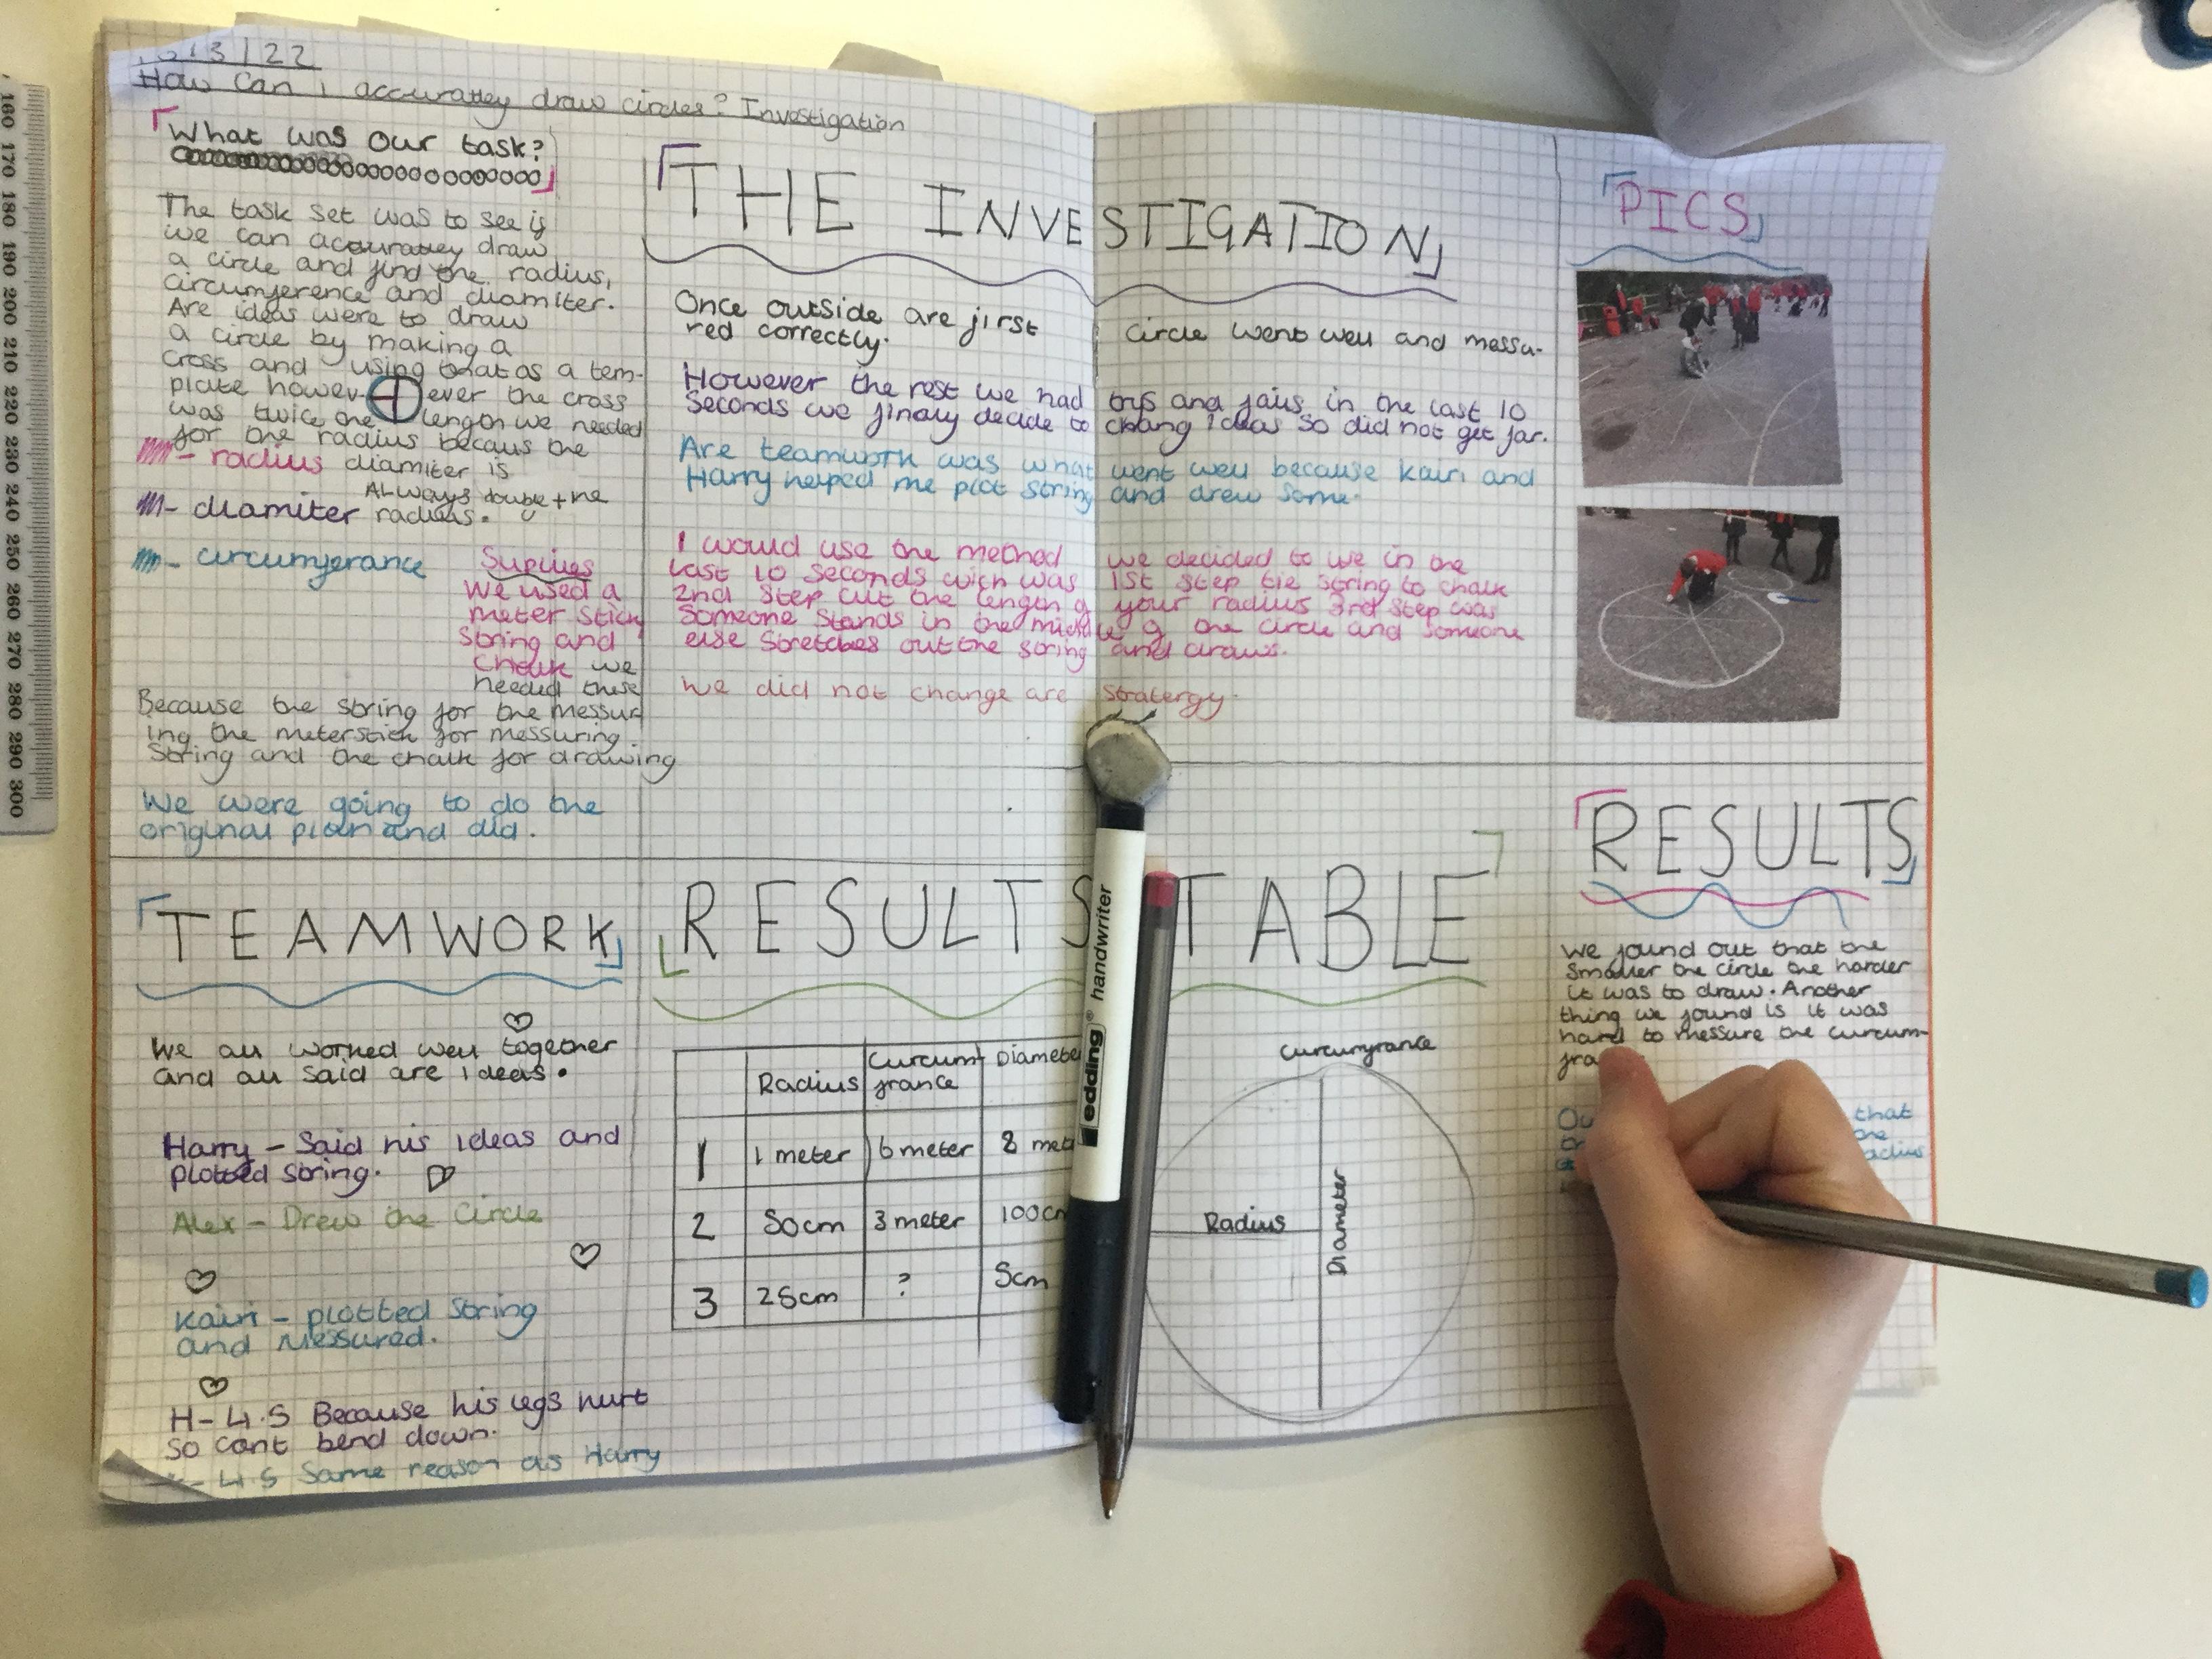 3/22
How Can i accurattey draw circles? Investigation
What was our task?
The task set was to see if
we can accurattey draw
a circle and find the radius,
circumference and diamiter.
Are ideas were to draw
a circle by making a
cross and using that as a tem-
plate howev- ever the cross
was twice the length we needed
for the radius becaus the
- radius diamiter is
ALways double the
- diamiter radius.
- curcumferance
Suplies
We used a
meter stick
string and
chalk we
needed these
Because the string for the messur
ing the meterstick for messuring
string and the chalk for drawing
We were going to do the
original plan and did.
THE INVESTIGATION
Once outside are first circle went well and messu-
red correctly.
However the rest we had trys and fails in the last 10
seconds we finaly decide to chang ideas so did not get far.
Are teamwork was what went well because kairi and
Harry helped me plot string and drew some.
I would use the method we decided to use in the
last 10 seconds wich was 1st step tie string to chalk
2nd step cut the length of your radius 3rd step was
someone stands in the middle of the circle and someone
else stretches out the string and draws.
we did not change are stratergy.
PICS
TEAMWORK
We all worked well together
and all said are ideas.
Harry - Said his ideas and
plotted string.
Alex - Drew the Circle
Kairi - plotted string
and Messured.
H - 4.5 Because his legs hurt
so cant bend down.
- 4.5 Same reason as Harry
RESULTS TABLE
Radius Curcum france Diameter
1 1 meter 6 meter 8
2 50cm 3 meter 100cm
3 25cm ? 5cm
curcumfrance
Radius
Diameter
RESULTS
We found out that the
smaller the circle the harder
it was to draw. Another
thing we found is it was
hard to messure the curcum-
fra
that
the
radius
edding® handwriter
160 170 180 190 200 210 220 230 240 250 260 270 280 290 300